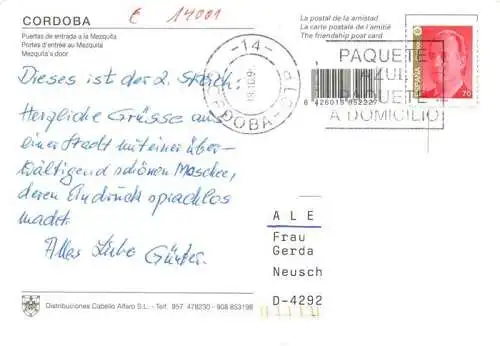 CORDOBA
€ 14001
Puertas de entrada a la Mezquita
Portes d'entrée au Mezquita
Mezquita's door
La postal de la amistad
La carte postale de l'amitié
The friendship post card
-14-
CORDOBA
PAQUETE
AZUL
PAQUETE
A DOMICILIO
ESPAÑA
70
8 426015 852227
Dieses ist der 2. Streich:
Herzliche Grüsse aus
einer Stadt mit einer über-
wältigend schönen Moschee,
deren Eindruck sprachlos
macht.
Alles Liebe Günter.
ALE
Frau
Gerda
Neusch
D-4292
Distribuciones Cabello Alfaro S.L. - Telf. 957 478230 - 908 853198